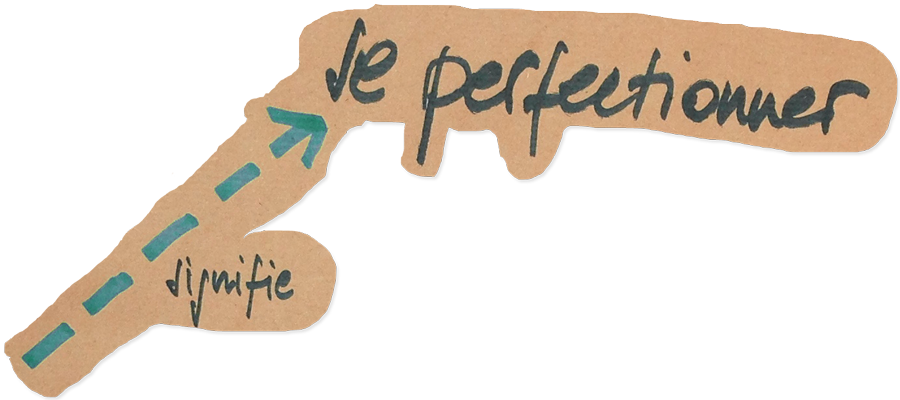 se perfectionner
signifie